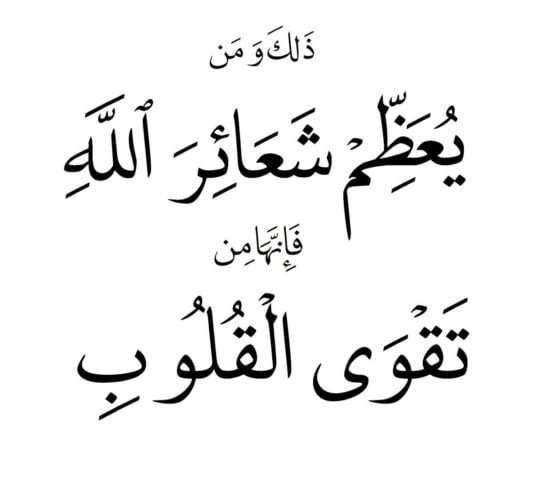 ذَلكَ وَ مَن
يُعَظِّمْ شَعَائِرَ ٱللَّهِ
فَإِنَّهَا مِن
تَقْوَى الْقُلُوبِ